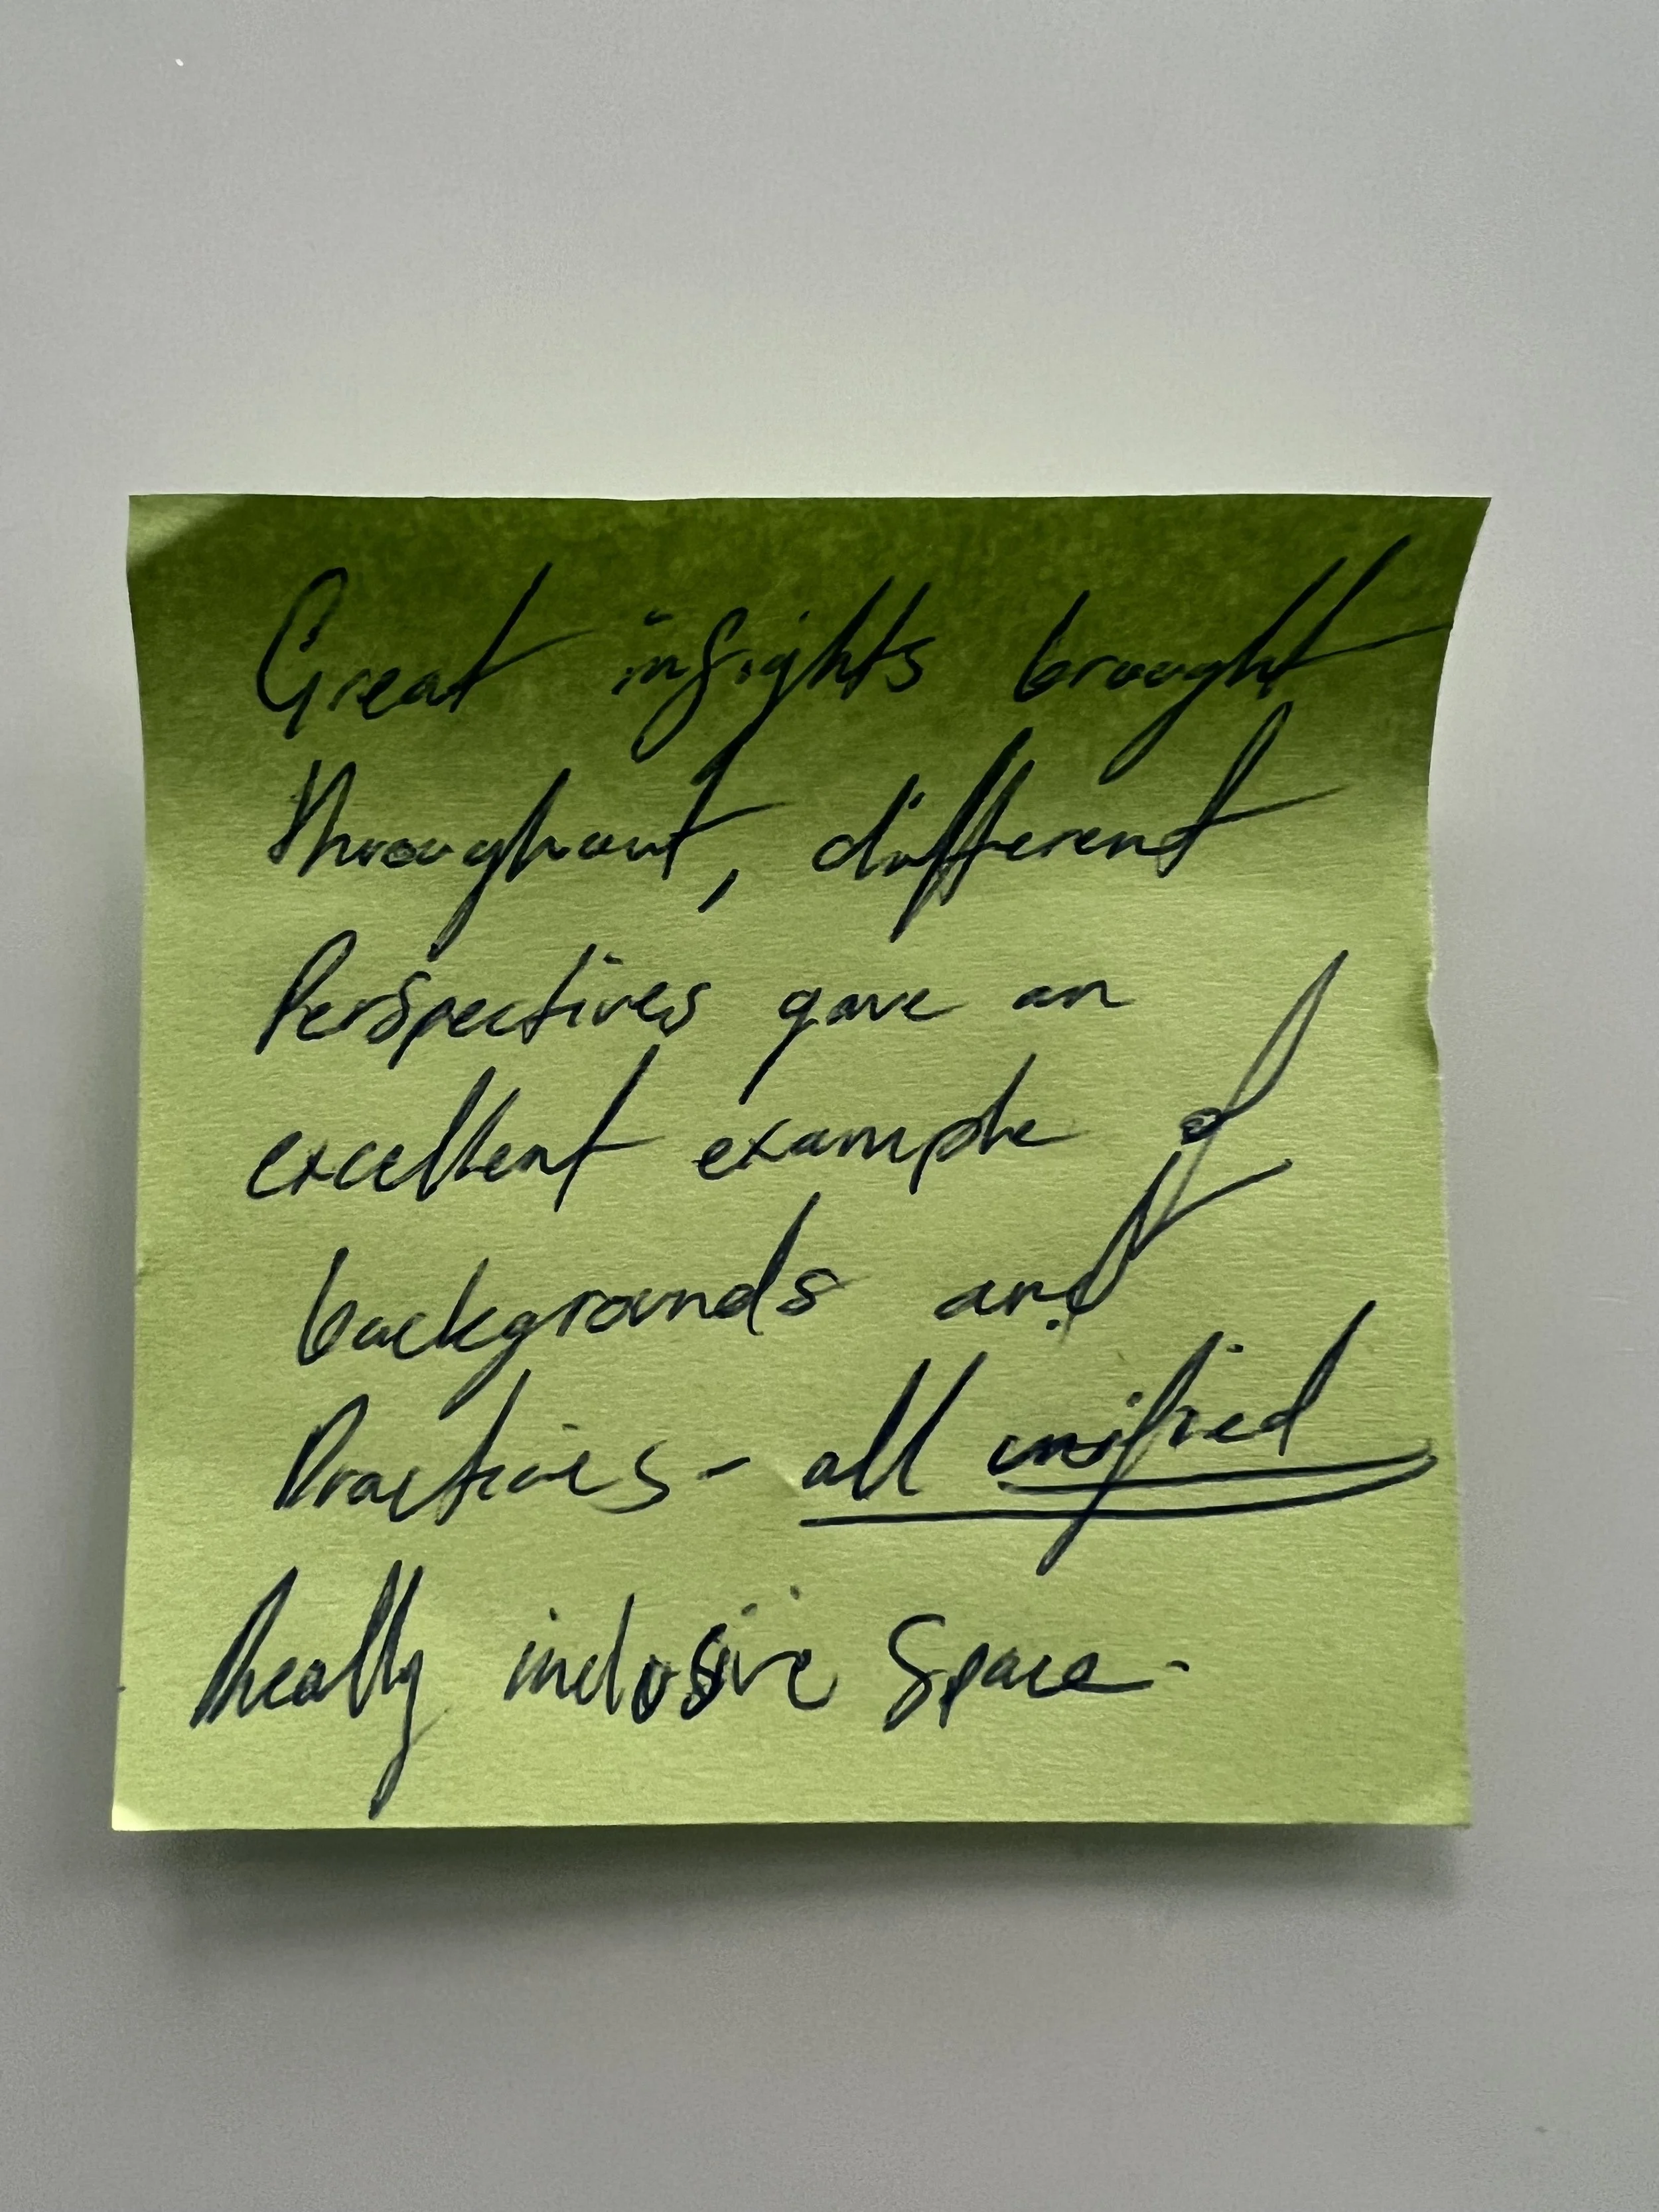 Great insights brought
throughout, different
Perspectives gave an
excellent example of
backgrounds and
Practices - all unified
Really inclusive Space.